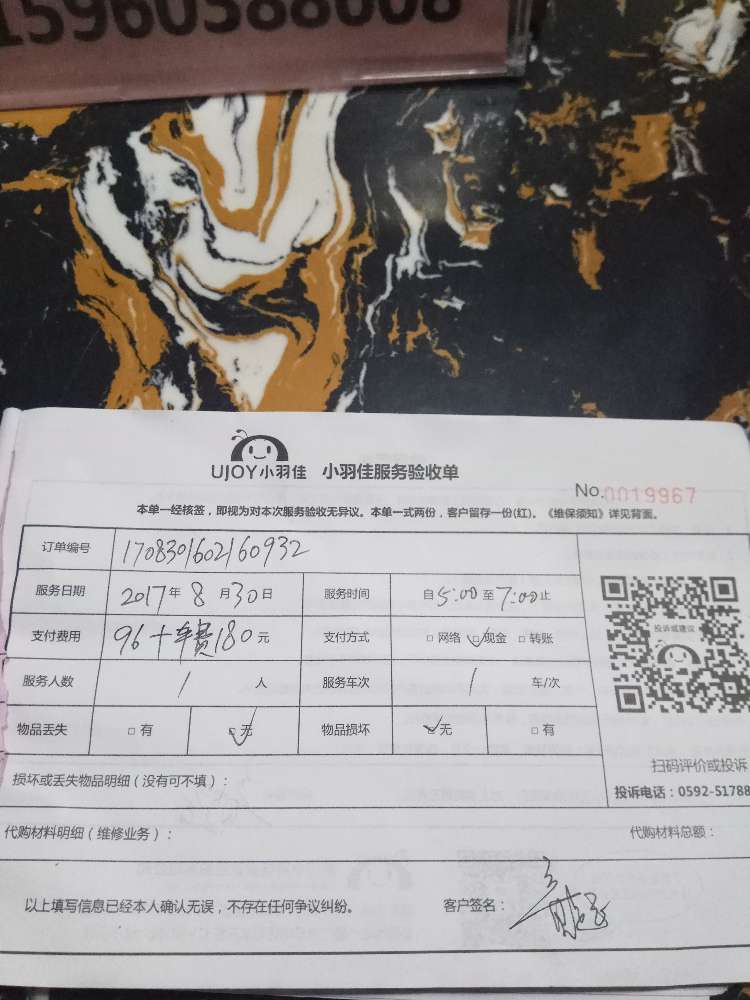 15960388608
UJOY小羽佳 小羽佳服务验收单
No.0019967
本单一经核签，即视为对本次服务验收无异议。本单一式两份，客户留存一份(红)。《维保须知》详见背面。
订单编号 1708301602160932
服务日期 2017年 8 月30日 服务时间 自5:00至7:00止
支付费用 96+车费180元 支付方式 □ 网络 ☑ 现金 □ 转账
投诉或建议
服务人数 1 人 服务车次 1 车/次
物品丢失 □ 有 ☑ 无 物品损坏 ☑ 无 □ 有
扫码评价或投诉
损坏或丢失物品明细（没有可不填）：
投诉电话：0592-51788
代购材料明细（维修业务）：
代购材料总额：
以上填写信息已经本人确认无误，不存在任何争议纠纷。 客户签名：